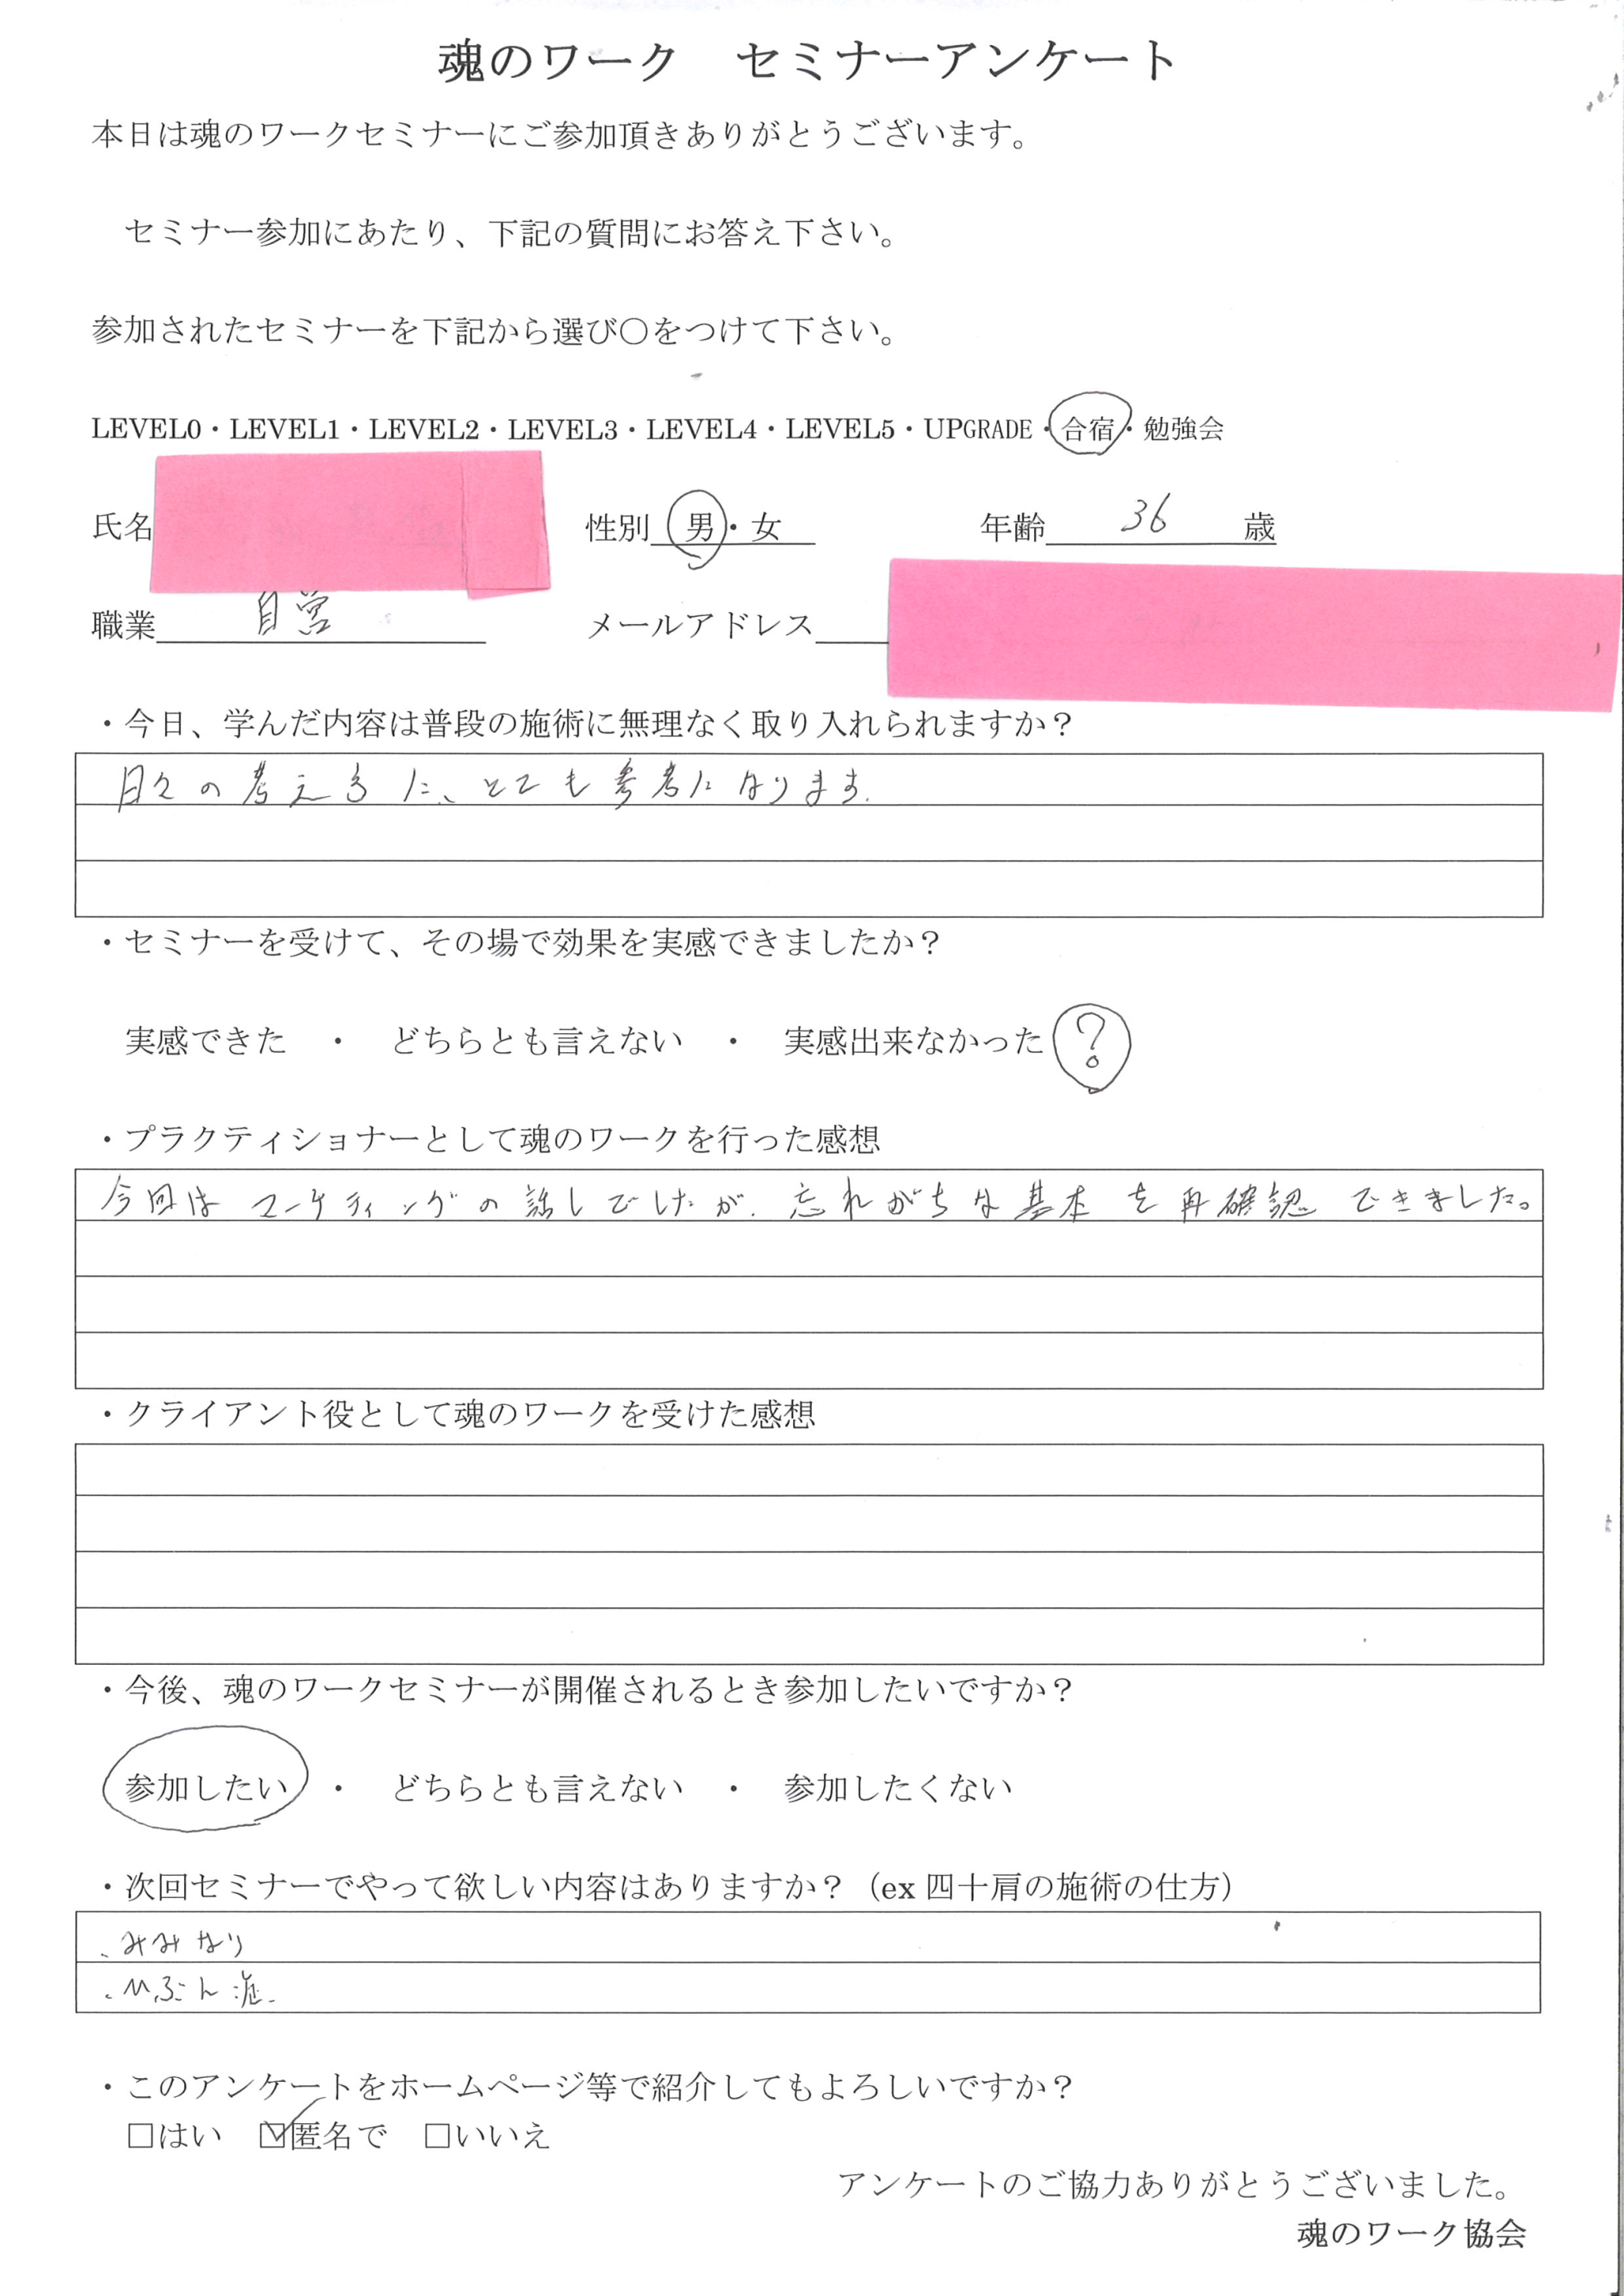 魂のワーク　セミナーアンケート
本日は魂のワークセミナーにご参加頂きありがとうございます。
セミナー参加にあたり、下記の質問にお答え下さい。
参加されたセミナーを下記から選び〇をつけて下さい。
LEVEL0・LEVEL1・LEVEL2・LEVEL3・LEVEL4・LEVEL5・UPGRADE・合宿・勉強会
氏名　性別　男・女　年齢　36　歳
職業　自営　メールアドレス
・今日、学んだ内容は普段の施術に無理なく取り入れられますか？
日々の考える に、とても参考になります.
・セミナーを受けて、その場で効果を実感できましたか？
実感できた　・　どちらとも言えない　・　実感出来なかった ?
・プラクティショナーとして魂のワークを行った感想
今回はマーケティングの話しでしたが、忘れがちな基本を再確認できました。
・クライアント役として魂のワークを受けた感想
・今後、魂のワークセミナーが開催されるとき参加したいですか？
参加したい　・　どちらとも言えない　・　参加したくない
・次回セミナーでやって欲しい内容はありますか？（ex 四十肩の施術の仕方）
・みみなり
・ひぶん
・このアンケートをホームページ等で紹介してもよろしいですか？
□はい　☑匿名で　□いいえ
アンケートのご協力ありがとうございました。
魂のワーク協会